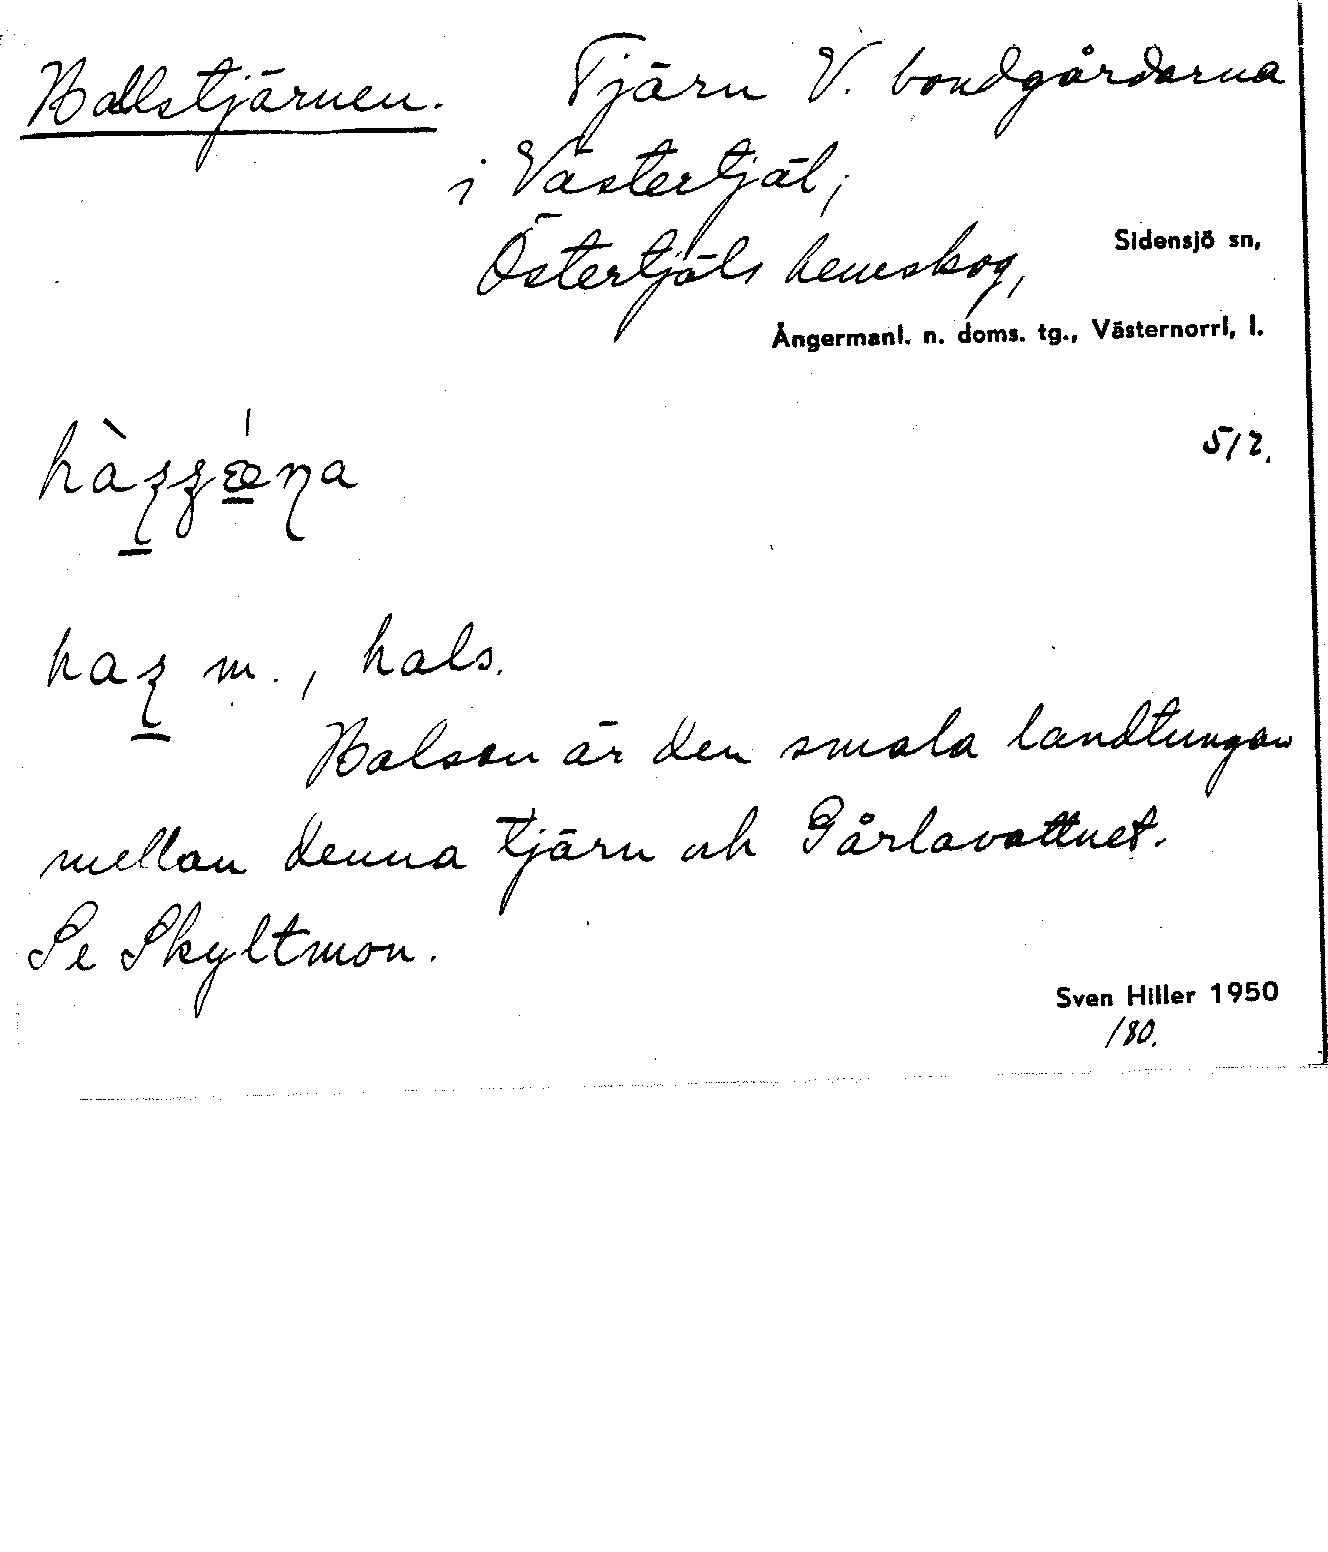 Hallstjärnen. Tjärn V. bondgårdarna
i Västertjäl,
Östertjäls hemskog,
Sidensjö sn,
Ångermanl. n. doms. tg., Västernorrl, l.
512.
m., hals.
Halsen är den smala landtungan
mellan denna tjärn och Gårlavattnet.
Se Skyltmon.
Sven Hiller 1950
180.